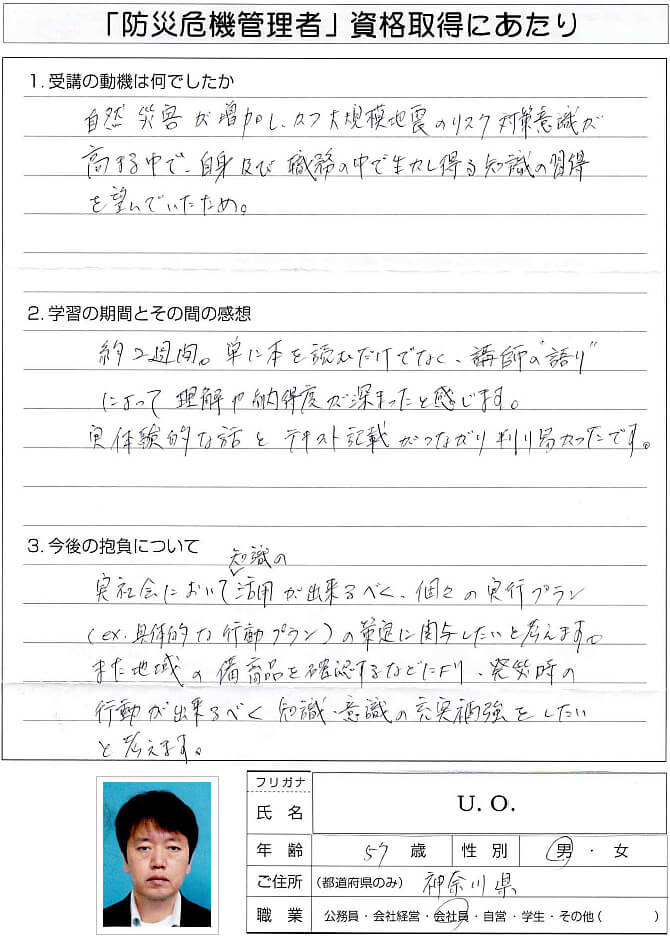 「防災危機管理者」資格取得にあたり
1. 受講の動機は何でしたか
自然災害が増加し、かつ大規模地震のリスク対策意識が
高まる中で、自身及び職務の中で生かし得る知識の習得
を望んでいたため。
2. 学習の期間とその間の感想
約2週間。単に本を読むだけでなく、講師の"語り"
によって理解や納得度が深まったと感じます。
実体験的な話とテキスト記載がつながり判り易かったです。
3. 今後の抱負について
知識の
実社会において活用が出来るべく、個々の実行プラン
(ex.具体的な行動プラン)の策定に関与したいと考えます。
また地域の備商品を確認するなどにより、発災時の
行動が出来るべく知識・意識の充実補強をしたい
と考えます。
フリガナ
氏名 U.O.
年齢 57 歳 性別 男・女
ご住所 (都道府県のみ) 神奈川県
職業 公務員・会社経営・会社員・自営・学生・その他( )